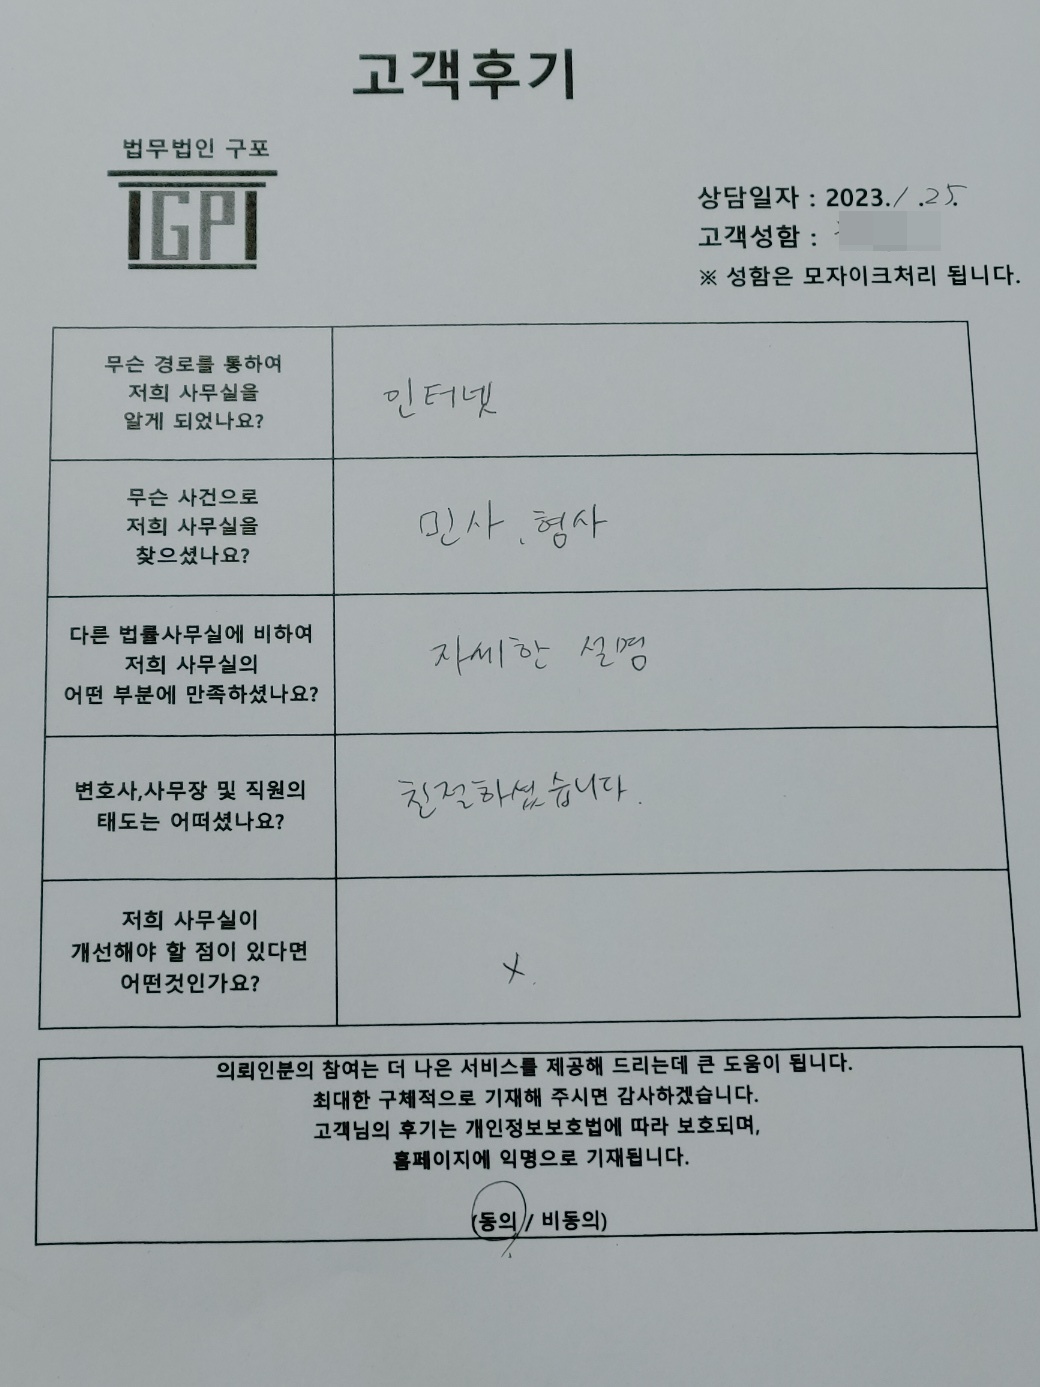 고객후기
법무법인 구포
GP
상담일자 : 2023. 1 .25.
고객성함 :
※ 성함은 모자이크처리 됩니다.
무슨 경로를 통하여
저희 사무실을
알게 되었나요?
인터넷
무슨 사건으로
저희 사무실을
찾으셨나요?
민사, 형사
다른 법률사무실에 비하여
저희 사무실의
어떤 부분에 만족하셨나요?
자세한 설명
변호사,사무장 및 직원의
태도는 어떠셨나요?
친절하셨습니다.
저희 사무실이
개선해야 할 점이 있다면
어떤것인가요?
X.
의뢰인분의 참여는 더 나은 서비스를 제공해 드리는데 큰 도움이 됩니다.
최대한 구체적으로 기재해 주시면 감사하겠습니다.
고객님의 후기는 개인정보보호법에 따라 보호되며,
홈페이지에 익명으로 기재됩니다.
(동의 / 비동의)